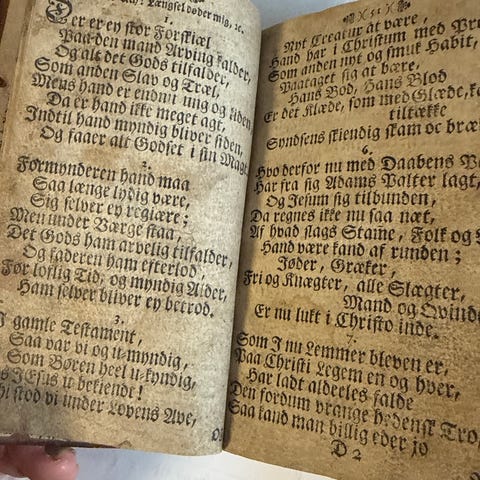 Længsel døder mig, ꝛc.
1.
Er er ey stor Forskiæl
Paa den mand Arving kalder,
Og alt det Gods tilfalder,
Som anden Slav og Træl,
Mens hand er endnu ung og liden,
Da er hand ikke meget agt,
Indtil hand myndig bliver siden,
Og faaer alt Godset i sin Magt.
2.
Formynderen hand maa
Saa længe lydig være,
Sig selver ey regiære;
Men under Værge staa,
Det Gods ham arvelig tilfalder,
Og faderen ham efterlod,
Før loflig Tid, og myndig Alder,
Ham selver bliver ey betrod.
3.
I gamle Testament,
Saa var vi og u-myndig,
Som Børen heel u-kyndig,
JEsus u bekiendt!
stod vi under Lovens Ave,
51
Nyt Creatur at være,
Hand har i Christum med
Som anden nyt og smuk Habit,
Paataget sig at bære,
Hans Bod, Hans Blod
Er det Klæde, som med Glæde,
tiltække
Syndsens skiendig skam oc
6.
Hvo derfor nu med Daabens
Har fra sig Adams Palter lagt,
Og JEsum sig tilbunden,
Da regnes ikke nu saa næt,
Af hvad slags Stame, Folk og
Hand være kand af runden;
Jøder, Græker,
Fri og Knægter, alle Slægter,
Mand og Qvinde
Er nu lukt i Christo inde.
7.
Som I nu Lemmer bleven er,
Paa Christi Legem en og hver,
Har ladt alderles falde
Den fordum vrange hedensk Tro,
Saa kand man billig eder jo
D 2